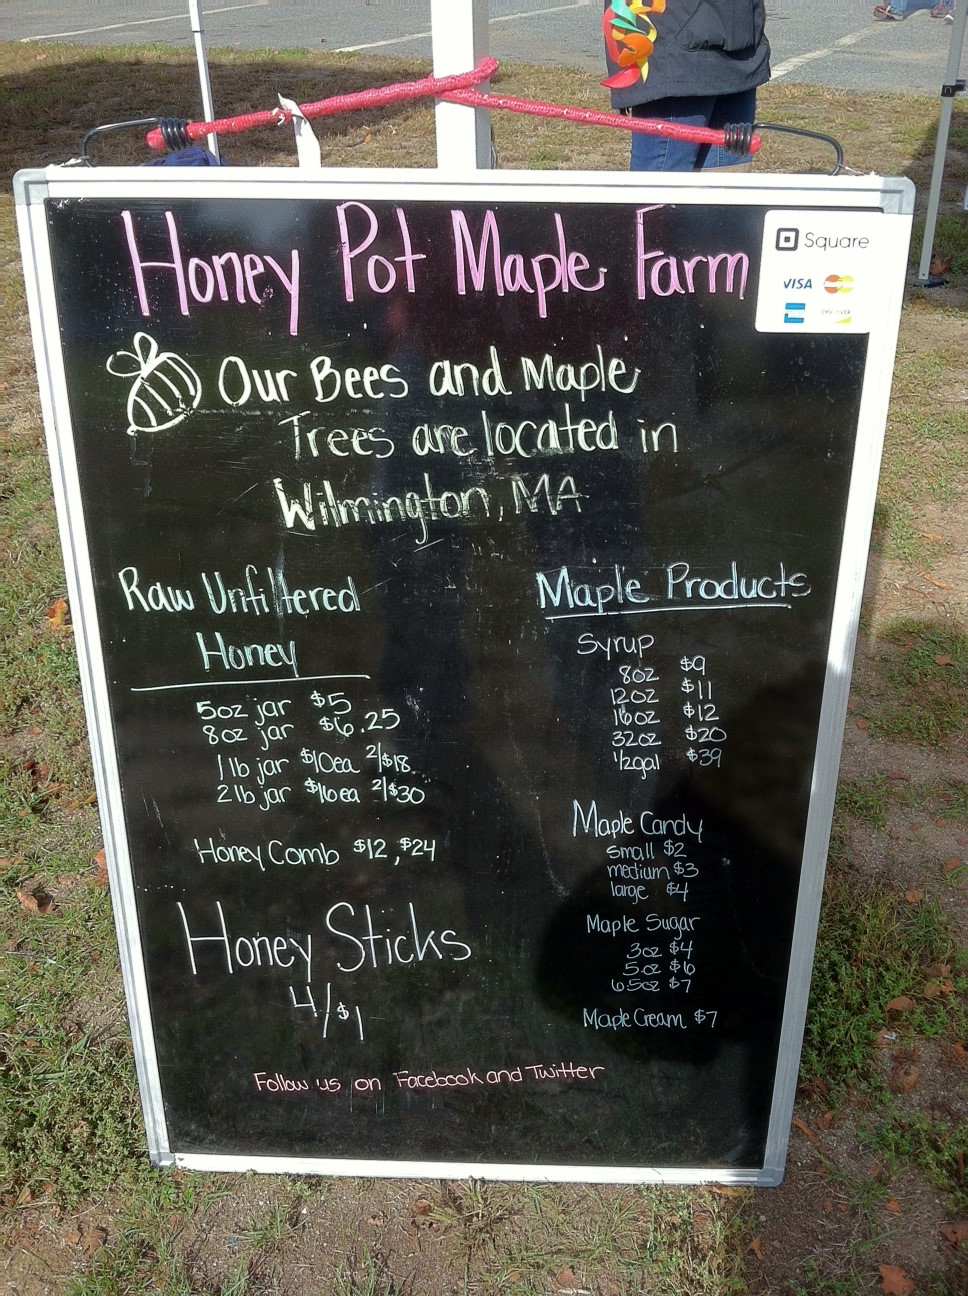 Honey Pot Maple Farm
Square
VISA
DISCOVER
Our Bees and Maple
Trees are located in
Wilmington, MA
Raw Unfiltered
Honey
5oz jar $5
8oz jar $6.25
1 lb jar $10ea 2/$18
2 lb jar $16ea 2/$30
Honey Comb $12, $24
Honey Sticks
4/$1
Maple Products
Syrup
8oz $9
12oz $11
16oz $12
32oz $20
1/2gal $39
Maple Candy
small $2
medium $3
large $4
Maple Sugar
3oz $4
5oz $6
6.5oz $7
Maple Cream $7
Follow us on Facebook and Twitter